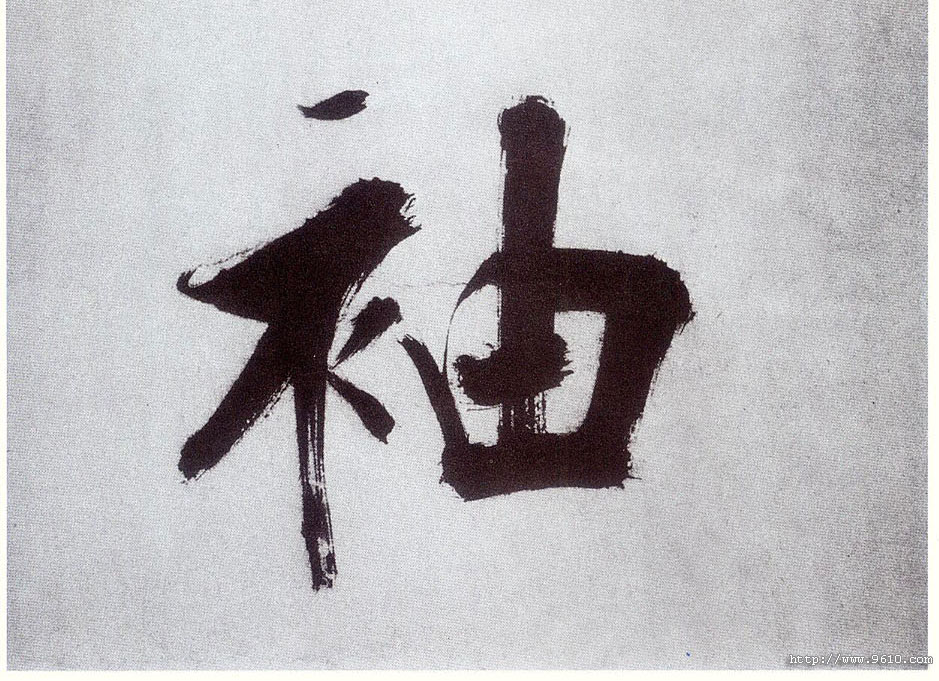 袖
http://www.9610.com